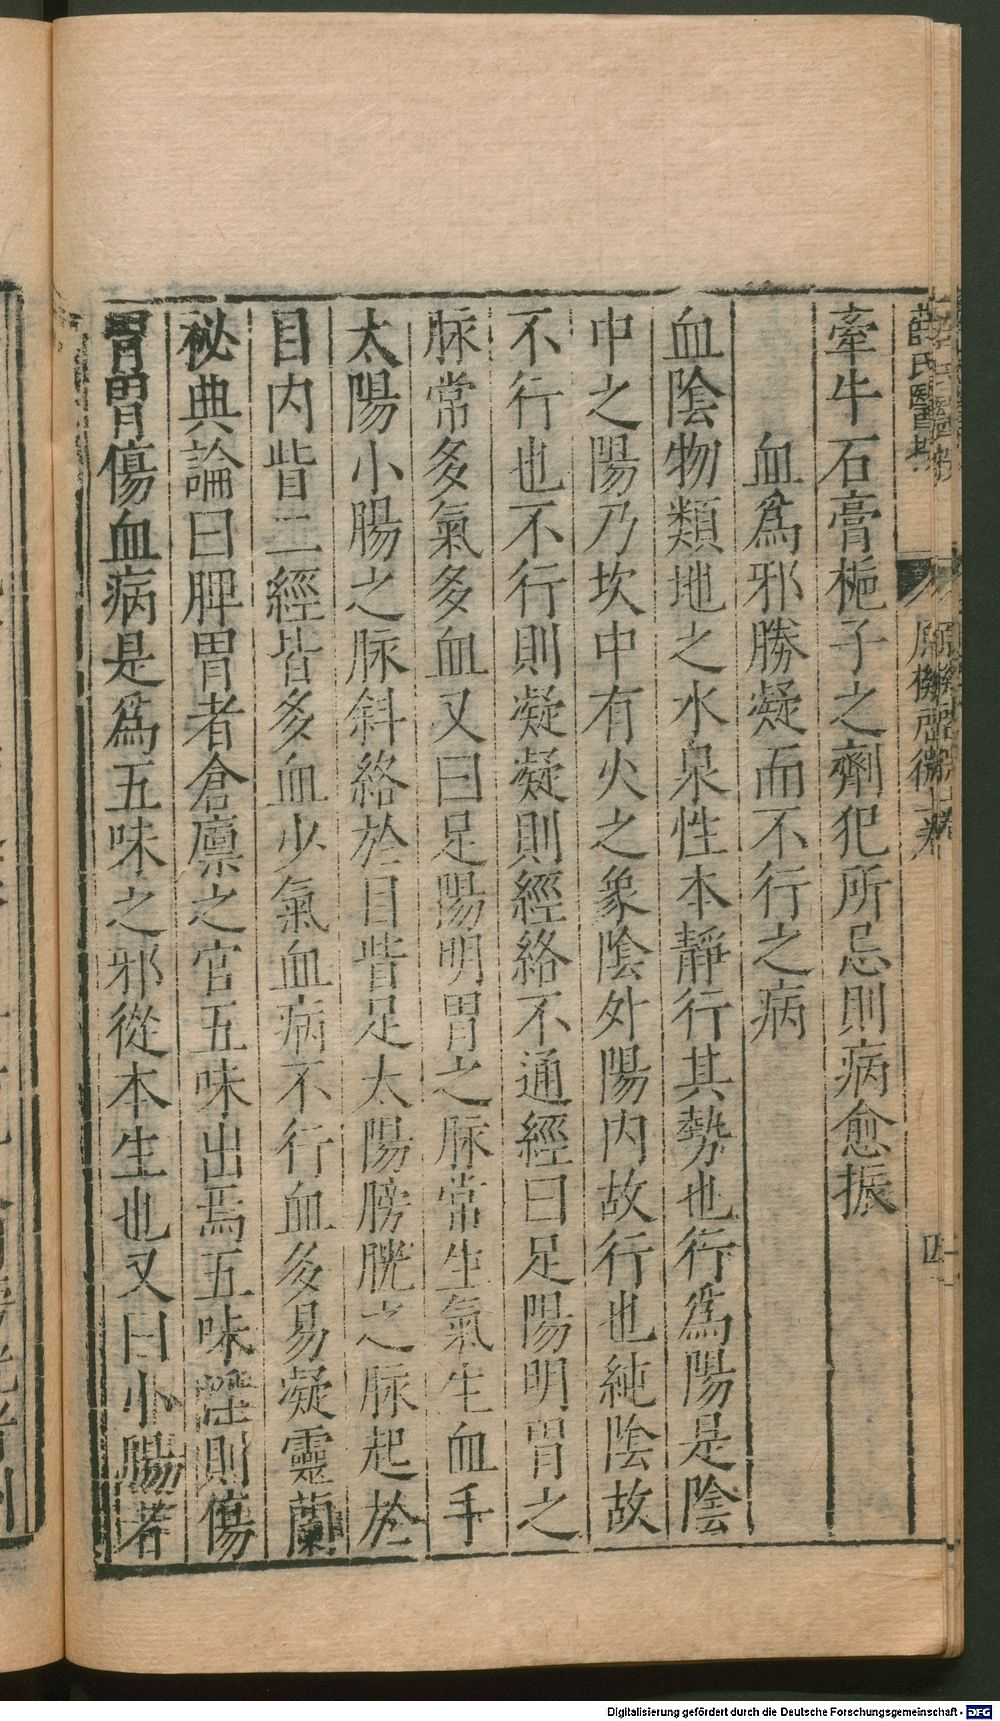 薛氏醫按 原機啓微上卷 四
牽牛石膏梔子之劑犯所忌則病愈振
血爲邪勝凝而不行之病
血陰物類地之水泉性本靜行其勢也行爲陽是陰
中之陽乃坎中有火之象陰外陽内故行也純陰故
不行也不行則凝凝則經絡不通經曰足陽明胃之
脉常多氣多血又曰足陽明胃之脉常生氣生血手
太陽小腸之脉斜絡於目眥足太陽膀胱之脉起於
目内眥二經皆多血少氣血病不行血多易凝靈蘭
祕典論曰脾胃者倉廪之官五味出焉五味淫則傷
胃胃傷血病是爲五味之邪從本生也又曰小腸者
Digitalisierung gefördert durch die Deutsche Forschungsgemeinschaft - DFG